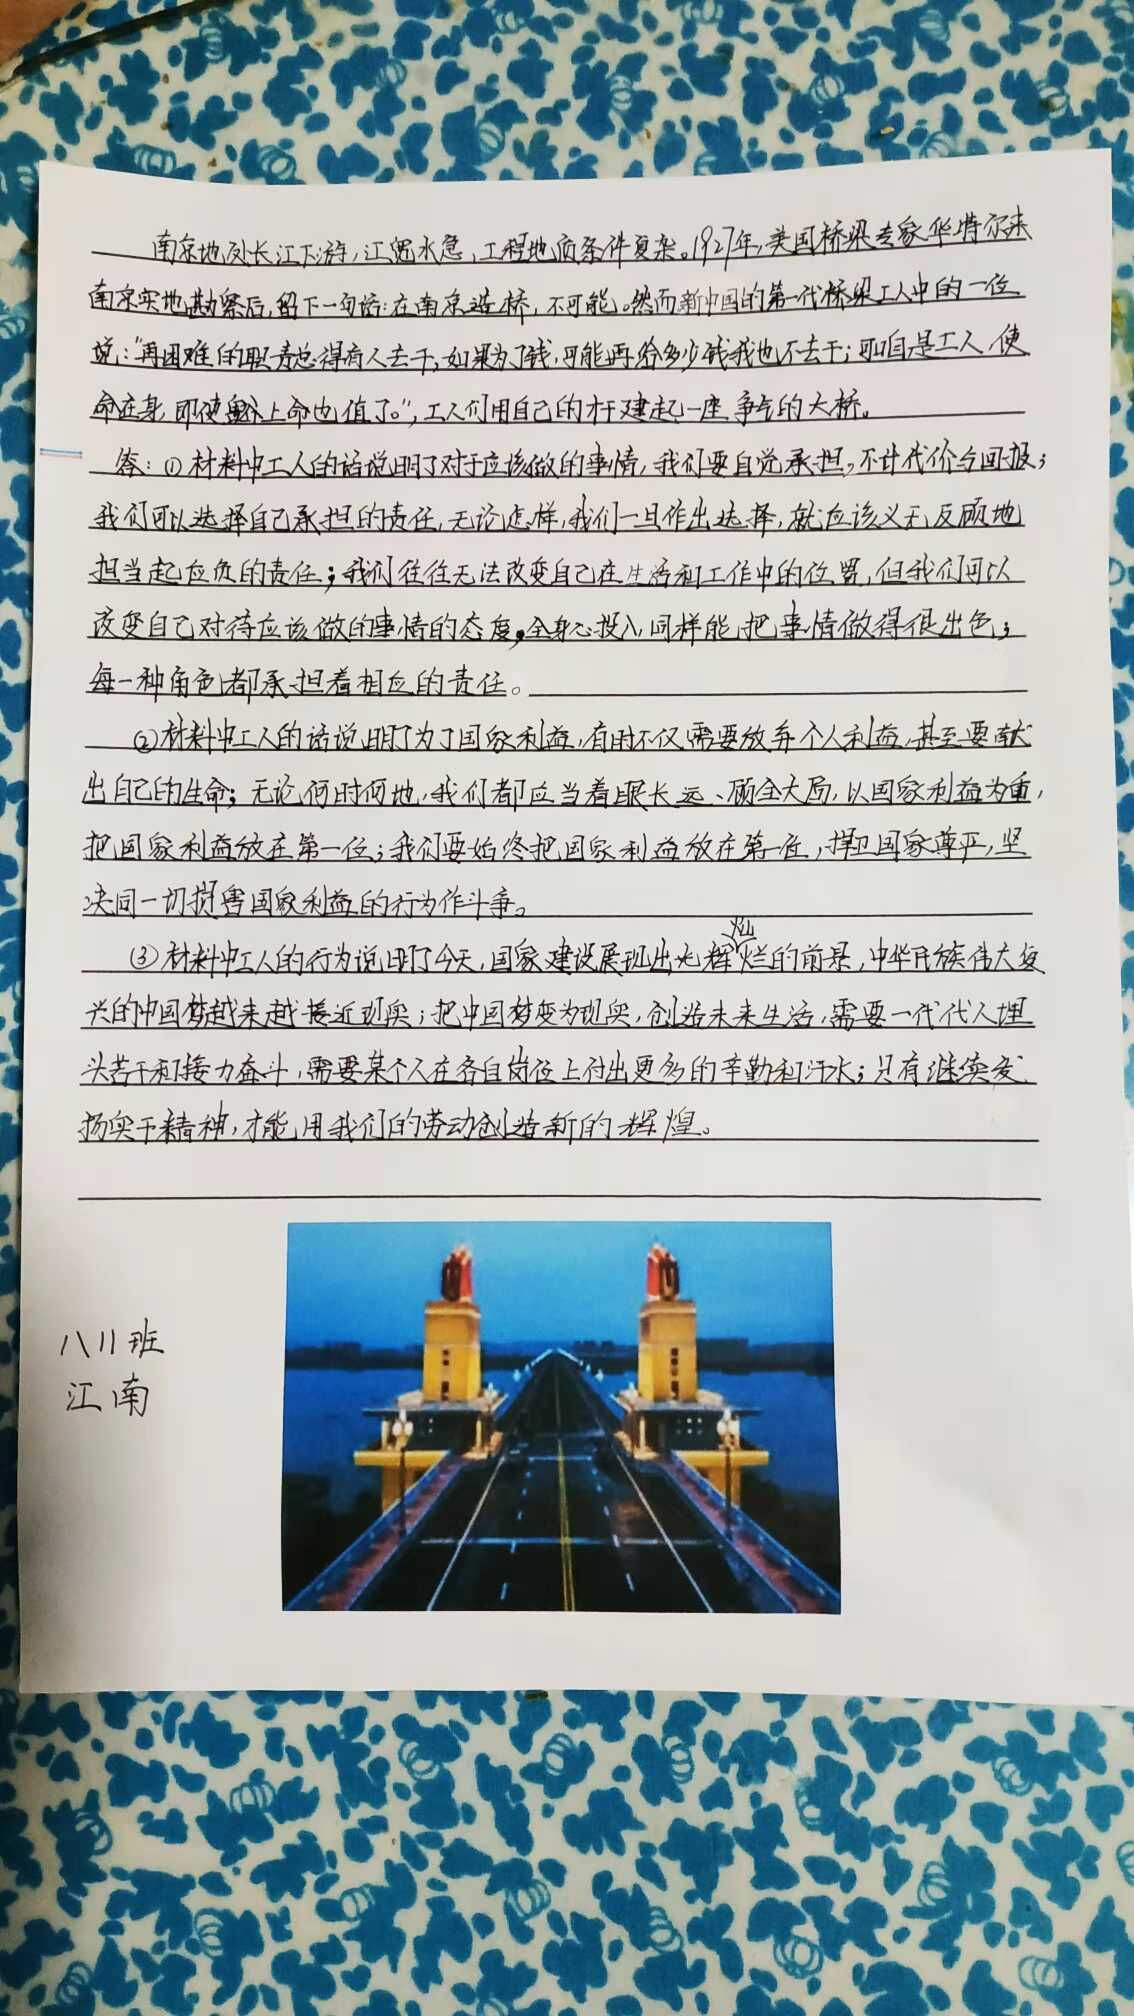 南京地处长江下游，江宽水急，工程地质条件复杂。1927年，美国桥梁专家华特尔来
南京实地勘察后，留下一句话：在南京造桥，不可能。然而新中国的第一代桥梁工人中的一位
说：“再困难的职责总得有人去干，如果为了钱，可能再给多少钱我也不去干；可咱是工人，使
命在身，即使上命也值了。”，工人们用自己的汗建起一座争气的大桥。
答：①材料中工人的话说明了对于应该做的事情，我们要自觉承担，不计代价与回报；
我们可以选择自己承担的责任，无论怎样，我们一旦作出选择，就应该义无反顾地
担当起应负的责任；我们往往无法改变自己在生活和工作中的位置，但我们可以
改变自己对待应该做的事情的态度，全身心投入，同样能把事情做得很出色；
每一种角色都承担着相应的责任。
②材料中工人的话说明了为了国家利益，有时不仅需要放弃个人利益，甚至要献
出自己的生命；无论何时何地，我们都应当着眼长远、顾全大局，以国家利益为重，
把国家利益放在第一位；我们要始终把国家利益放在第一位，捍卫国家尊严，坚
决同一切损害国家利益的行为作斗争。
③材料中工人的行为说明了今天，国家建设展现出光辉灿烂的前景，中华民族伟大复
兴的中国梦越来越接近现实；把中国梦变为现实，创造未来生活，需要一代代人埋
头苦干和接力奋斗，需要某个人在各自岗位上付出更多的辛勤和汗水；只有继续发
扬实干精神，才能用我们的劳动创造新的辉煌。
八11班
江南